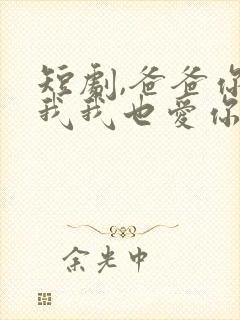 短剧,爸爸你
我我也爱你
余光中